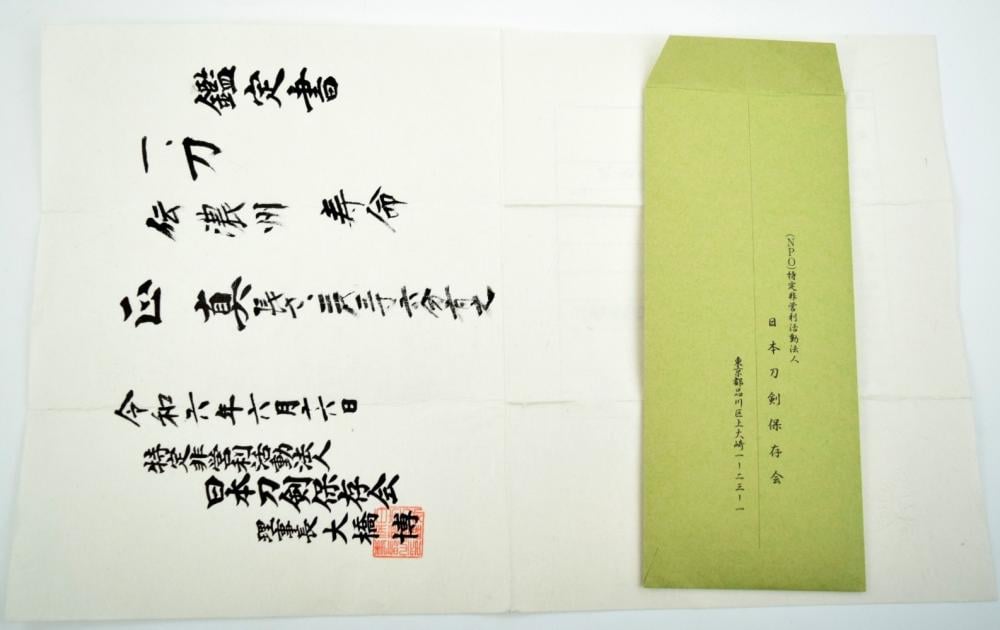 鑑定書
一、刀
伝濃州 寿命
正真 長サ、
令和六年六月六日
特定非営利活動法人
日本刀剣保存会
理事長 大橋博
(NPO)特定非営利活動法人
日本刀剣保存会
東京都品川区上大崎一ー二三ー一